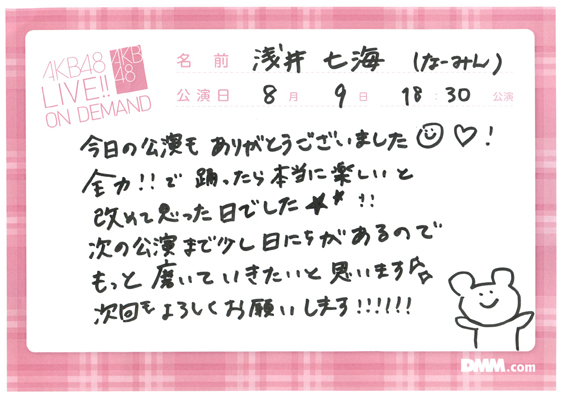 AKB48
LIVE!!
ON DEMAND
AKB
48
名前 浅井 七海 (なーみん)
公演日 8月 9日 18:30 公演
今日の公演も ありがとうございました ♡!
全力!!で 踊ったら本当に楽しいと
改めて思った日でした★★!!
次の公演まで少し日にちがあるので
もっと 磨いていきたいと思います☆☆
次回もよろしくお願いします!!!!!!
DMM.com